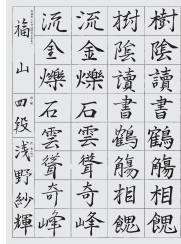 樹陰讀書鶴觴相餽
樹陰讀書鶴觴相餽
流金爍石雲聳奇峰
流金爍石雲聳奇峰
福山 四段 浅野紗輝